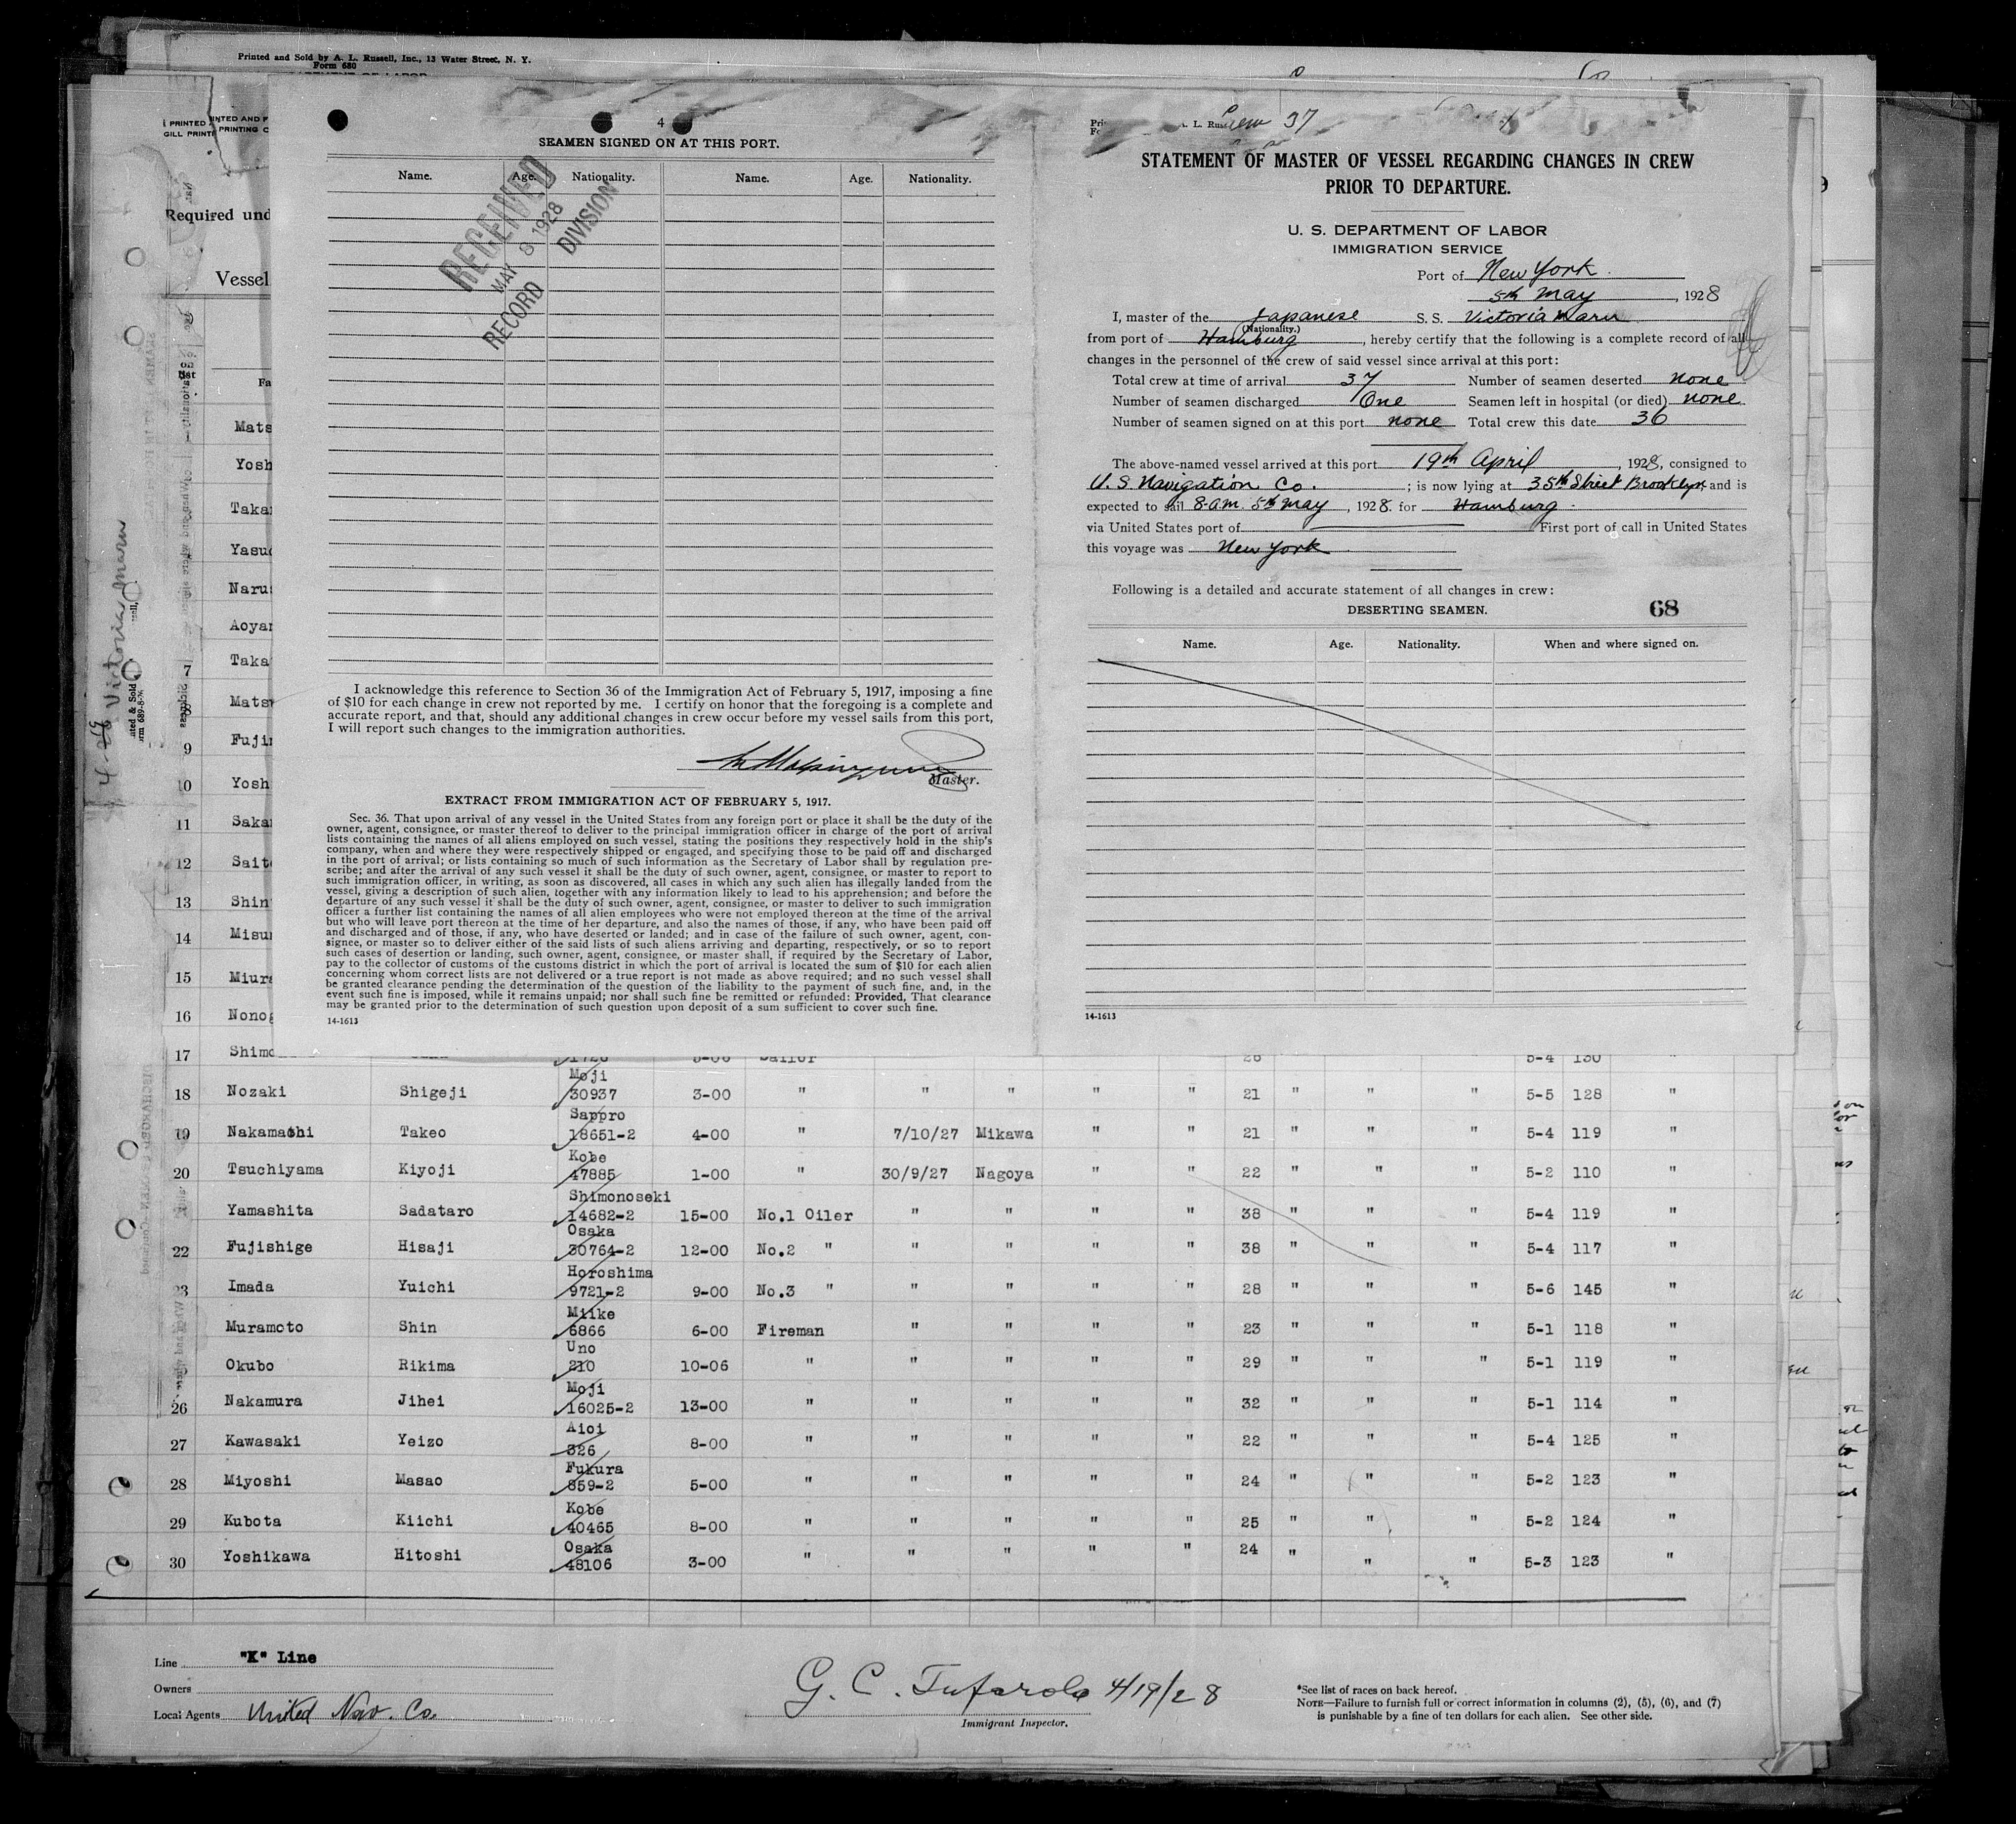 Printed and Sold by A. L. Russell, Inc., 13 Water Street, N. Y.
Form 680
4
SEAMEN SIGNED ON AT THIS PORT.
Name. Age. Nationality. Name. Age. Nationality.
RECEIVED
MAY 8 1928
RECORD DIVISION
I acknowledge this reference to Section 36 of the Immigration Act of February 5, 1917, imposing a fine
of $10 for each change in crew not reported by me. I certify on honor that the foregoing is a complete and
accurate report, and that, should any additional changes in crew occur before my vessel sails from this port,
I will report such changes to the immigration authorities.
Master.
EXTRACT FROM IMMIGRATION ACT OF FEBRUARY 5, 1917.
Sec. 36. That upon arrival of any vessel in the United States from any foreign port or place it shall be the duty of the
owner, agent, consignee, or master thereof to deliver to the principal immigration officer in charge of the port of arrival
lists containing the names of all aliens employed on such vessel, stating the positions they respectively hold in the ship's
company, when and where they were respectively shipped or engaged, and specifying those to be paid off and discharged
in the port of arrival; or lists containing so much of such information as the Secretary of Labor shall by regulation pre-
scribe; and after the arrival of any such vessel it shall be the duty of such owner, agent, consignee, or master to report to
such immigration officer, in writing, as soon as discovered, all cases in which any such alien has illegally landed from the
vessel, giving a description of such alien, together with any information likely to lead to his apprehension; and before the
departure of any such vessel it shall be the duty of such owner, agent, consignee, or master to deliver to such immigration
officer a further list containing the names of all alien employees who were not employed thereon at the time of the arrival
but who will leave port thereon at the time of her departure, and also the names of those, if any, who have been paid off
and discharged and of those, if any, who have deserted or landed; and in case of the failure of such owner, agent, con-
signee, or master so to deliver either of the said lists of such aliens arriving and departing, respectively, or so to report
such cases of desertion or landing, such owner, agent, consignee, or master shall, if required by the Secretary of Labor,
pay to the collector of customs of the customs district in which the port of arrival is located the sum of $10 for each alien
concerning whom correct lists are not delivered or a true report is not made as above required; and no such vessel shall
be granted clearance pending the determination of the question of the liability to the payment of such fine, and, in the
event such fine is imposed, while it remains unpaid; nor shall such fine be remitted or refunded: Provided, That clearance
may be granted prior to the determination of such question upon deposit of a sum sufficient to cover such fine.
14-1613
Crew 37
STATEMENT OF MASTER OF VESSEL REGARDING CHANGES IN CREW
PRIOR TO DEPARTURE.
U. S. DEPARTMENT OF LABOR
IMMIGRATION SERVICE
Port of New York
5th May, 1928
I, master of the Japanese S. S. Victoria Maru
(Nationality.)
from port of Hamburg, hereby certify that the following is a complete record of all
changes in the personnel of the crew of said vessel since arrival at this port:
Total crew at time of arrival 37 Number of seamen deserted none
Number of seamen discharged One Seamen left in hospital (or died) none
Number of seamen signed on at this port none Total crew this date 36
The above-named vessel arrived at this port 19th April, 1928, consigned to
U. S. Navigation Co. ; is now lying at 35th Street Brooklyn, and is
expected to sail 8 a.m. 5th May, 1928. for Hamburg.
via United States port of First port of call in United States
this voyage was New York
Following is a detailed and accurate statement of all changes in crew:
DESERTING SEAMEN. 68
Name. Age. Nationality. When and where signed on.
14-1613
Required und
Vessel
Mats
Yosh
Taka
Yasu
Naru
Aoya
7 Taka
8 Mats
9 Fuji
10 Yosh
11 Saka
12 Sait
13 Shin
14 Misu
15 Miur
16 Nonog
17 Shimo 1726 5-06 Sailor 26 5-4 130 "
Moji
18 Nozaki Shigeji 30937 3-00 " " " " " 21 " " " 5-5 128 "
Sappro
19 Nakamachi Takeo 18651-2 4-00 " 7/10/27 Mikawa " " 21 " " " 5-4 119 "
Kobe
20 Tsuchiyama Kiyoji 47885 1-00 " 30/9/27 Nagoya " " 22 " " " 5-2 110 "
Shimonoseki
Yamashita Sadataro 14682-2 15-00 No.1 Oiler " " " " 38 " " " 5-4 119 "
Osaka
22 Fujishige Hisaji 30764-2 12-00 No.2 " " " " " 38 " " " 5-4 117 "
Horoshima
23 Imada Yuichi 9721-2 9-00 No.3 " " " " " 28 " " " 5-6 145 "
Miike
Muramoto Shin 6866 6-00 Fireman " " " " 23 " " " 5-1 118 "
Uno
Okubo Rikima 210 10-06 " " " " " 29 " " " 5-1 119 "
Moji
26 Nakamura Jihei 16025-2 13-00 " " " " " 32 " " " 5-1 114 "
Aioi
27 Kawasaki Yeizo 326 8-00 " " " " " 22 " " " 5-4 125 "
Fukura
28 Miyoshi Masao 859-2 5-00 " " " " " 24 " " " 5-2 123 "
Kobe
29 Kubota Kiichi 40465 8-00 " " " " " 25 " " " 5-2 124 "
Osaka
30 Yoshikawa Hitoshi 48106 3-00 " " " " " 24 " " " 5-3 123 "
Line "K" Line
Owners
Local Agents United Nav. Co.
G. C. Tufarolo 4/19/28
Immigrant Inspector.
*See list of races on back hereof.
NOTE—Failure to furnish full or correct information in columns (2), (5), (6), and (7)
is punishable by a fine of ten dollars for each alien. See other side.
Victoria Maru